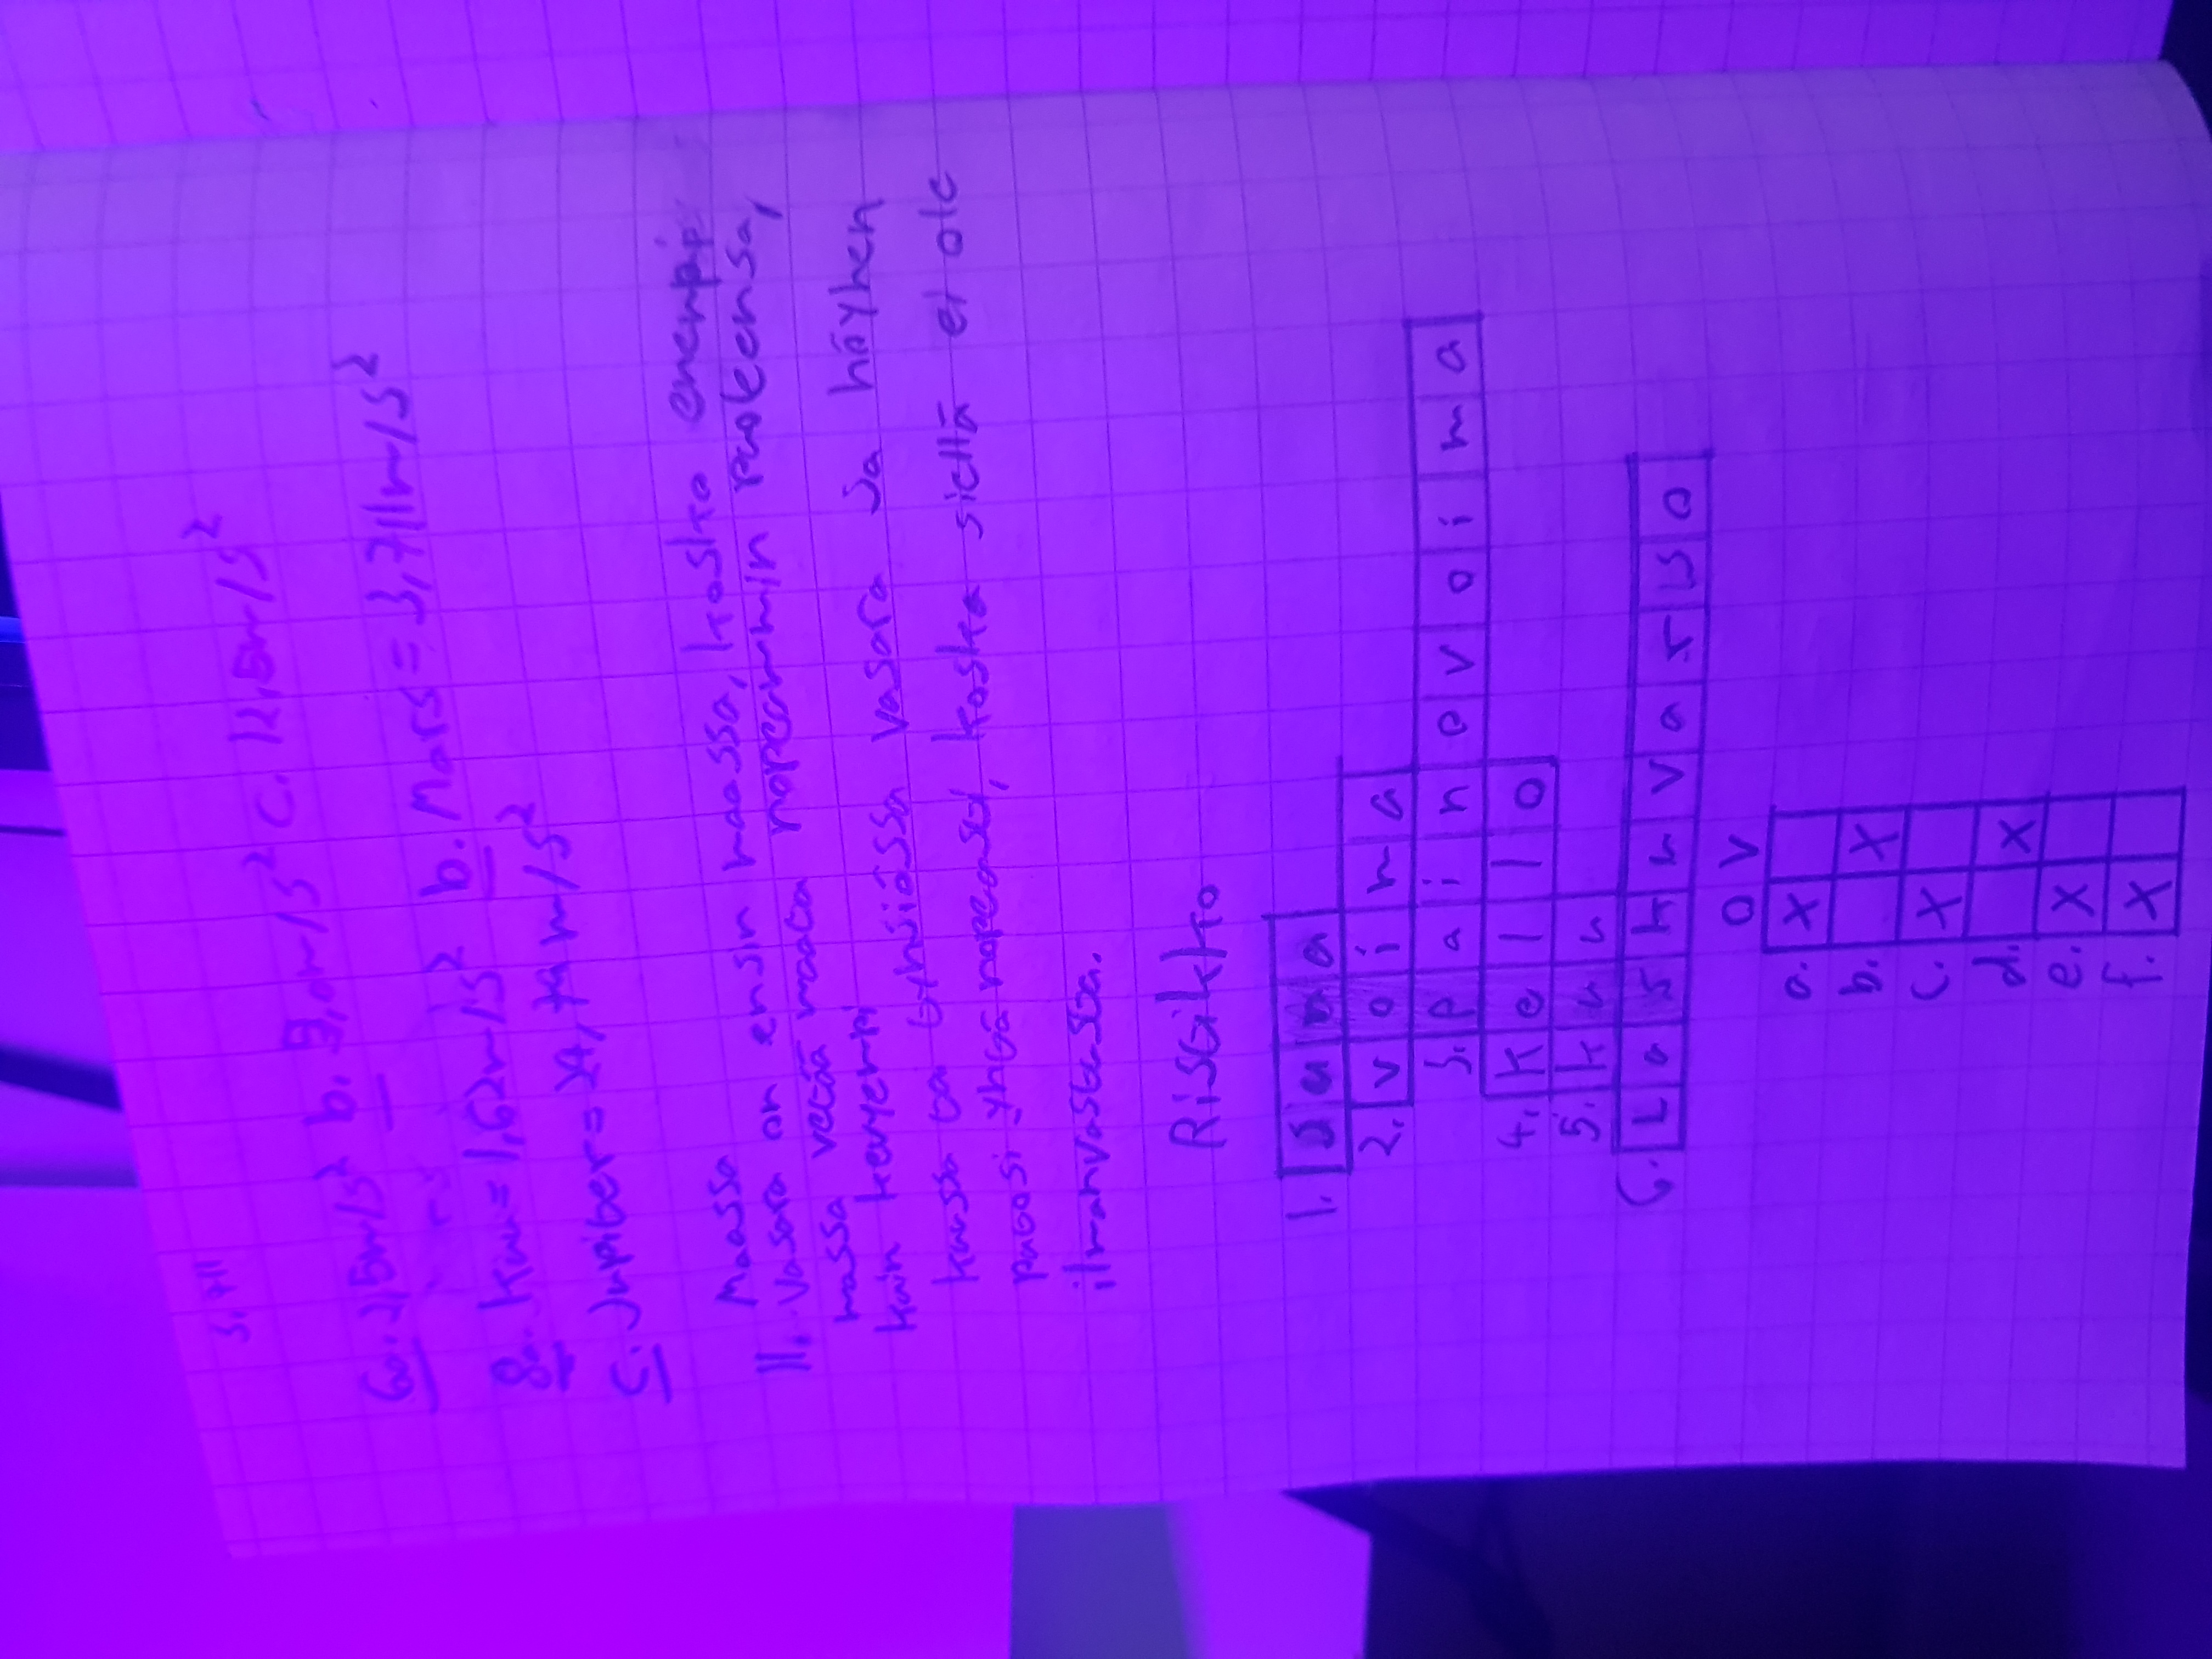 6a. 2,5m/s² b. 3,0m/s² c. 12,5m/s²
8a. Kuu = 1,62m/s² b. Mars = 3,711m/s²
c. Jupiter = 24,79m/s²
Maassa
11. Vasara on ensin maassa, koska enempi
massa vetää maata nopeammin puoleensa,
kuin kevyempi
kussa ta tyhjiössä vasara ja höyhen
putosi yhtä nopeasti, koska siellä ei ole
ilmanvastusta.
Ristikko
1. s u m a
2. v o i m a
3. p a i n o v o i m a
4. k e l l o
5. k u u
6. L a s k u v a r j o
O V
a. X
b. X
c. X
d. X
e. X
f. X